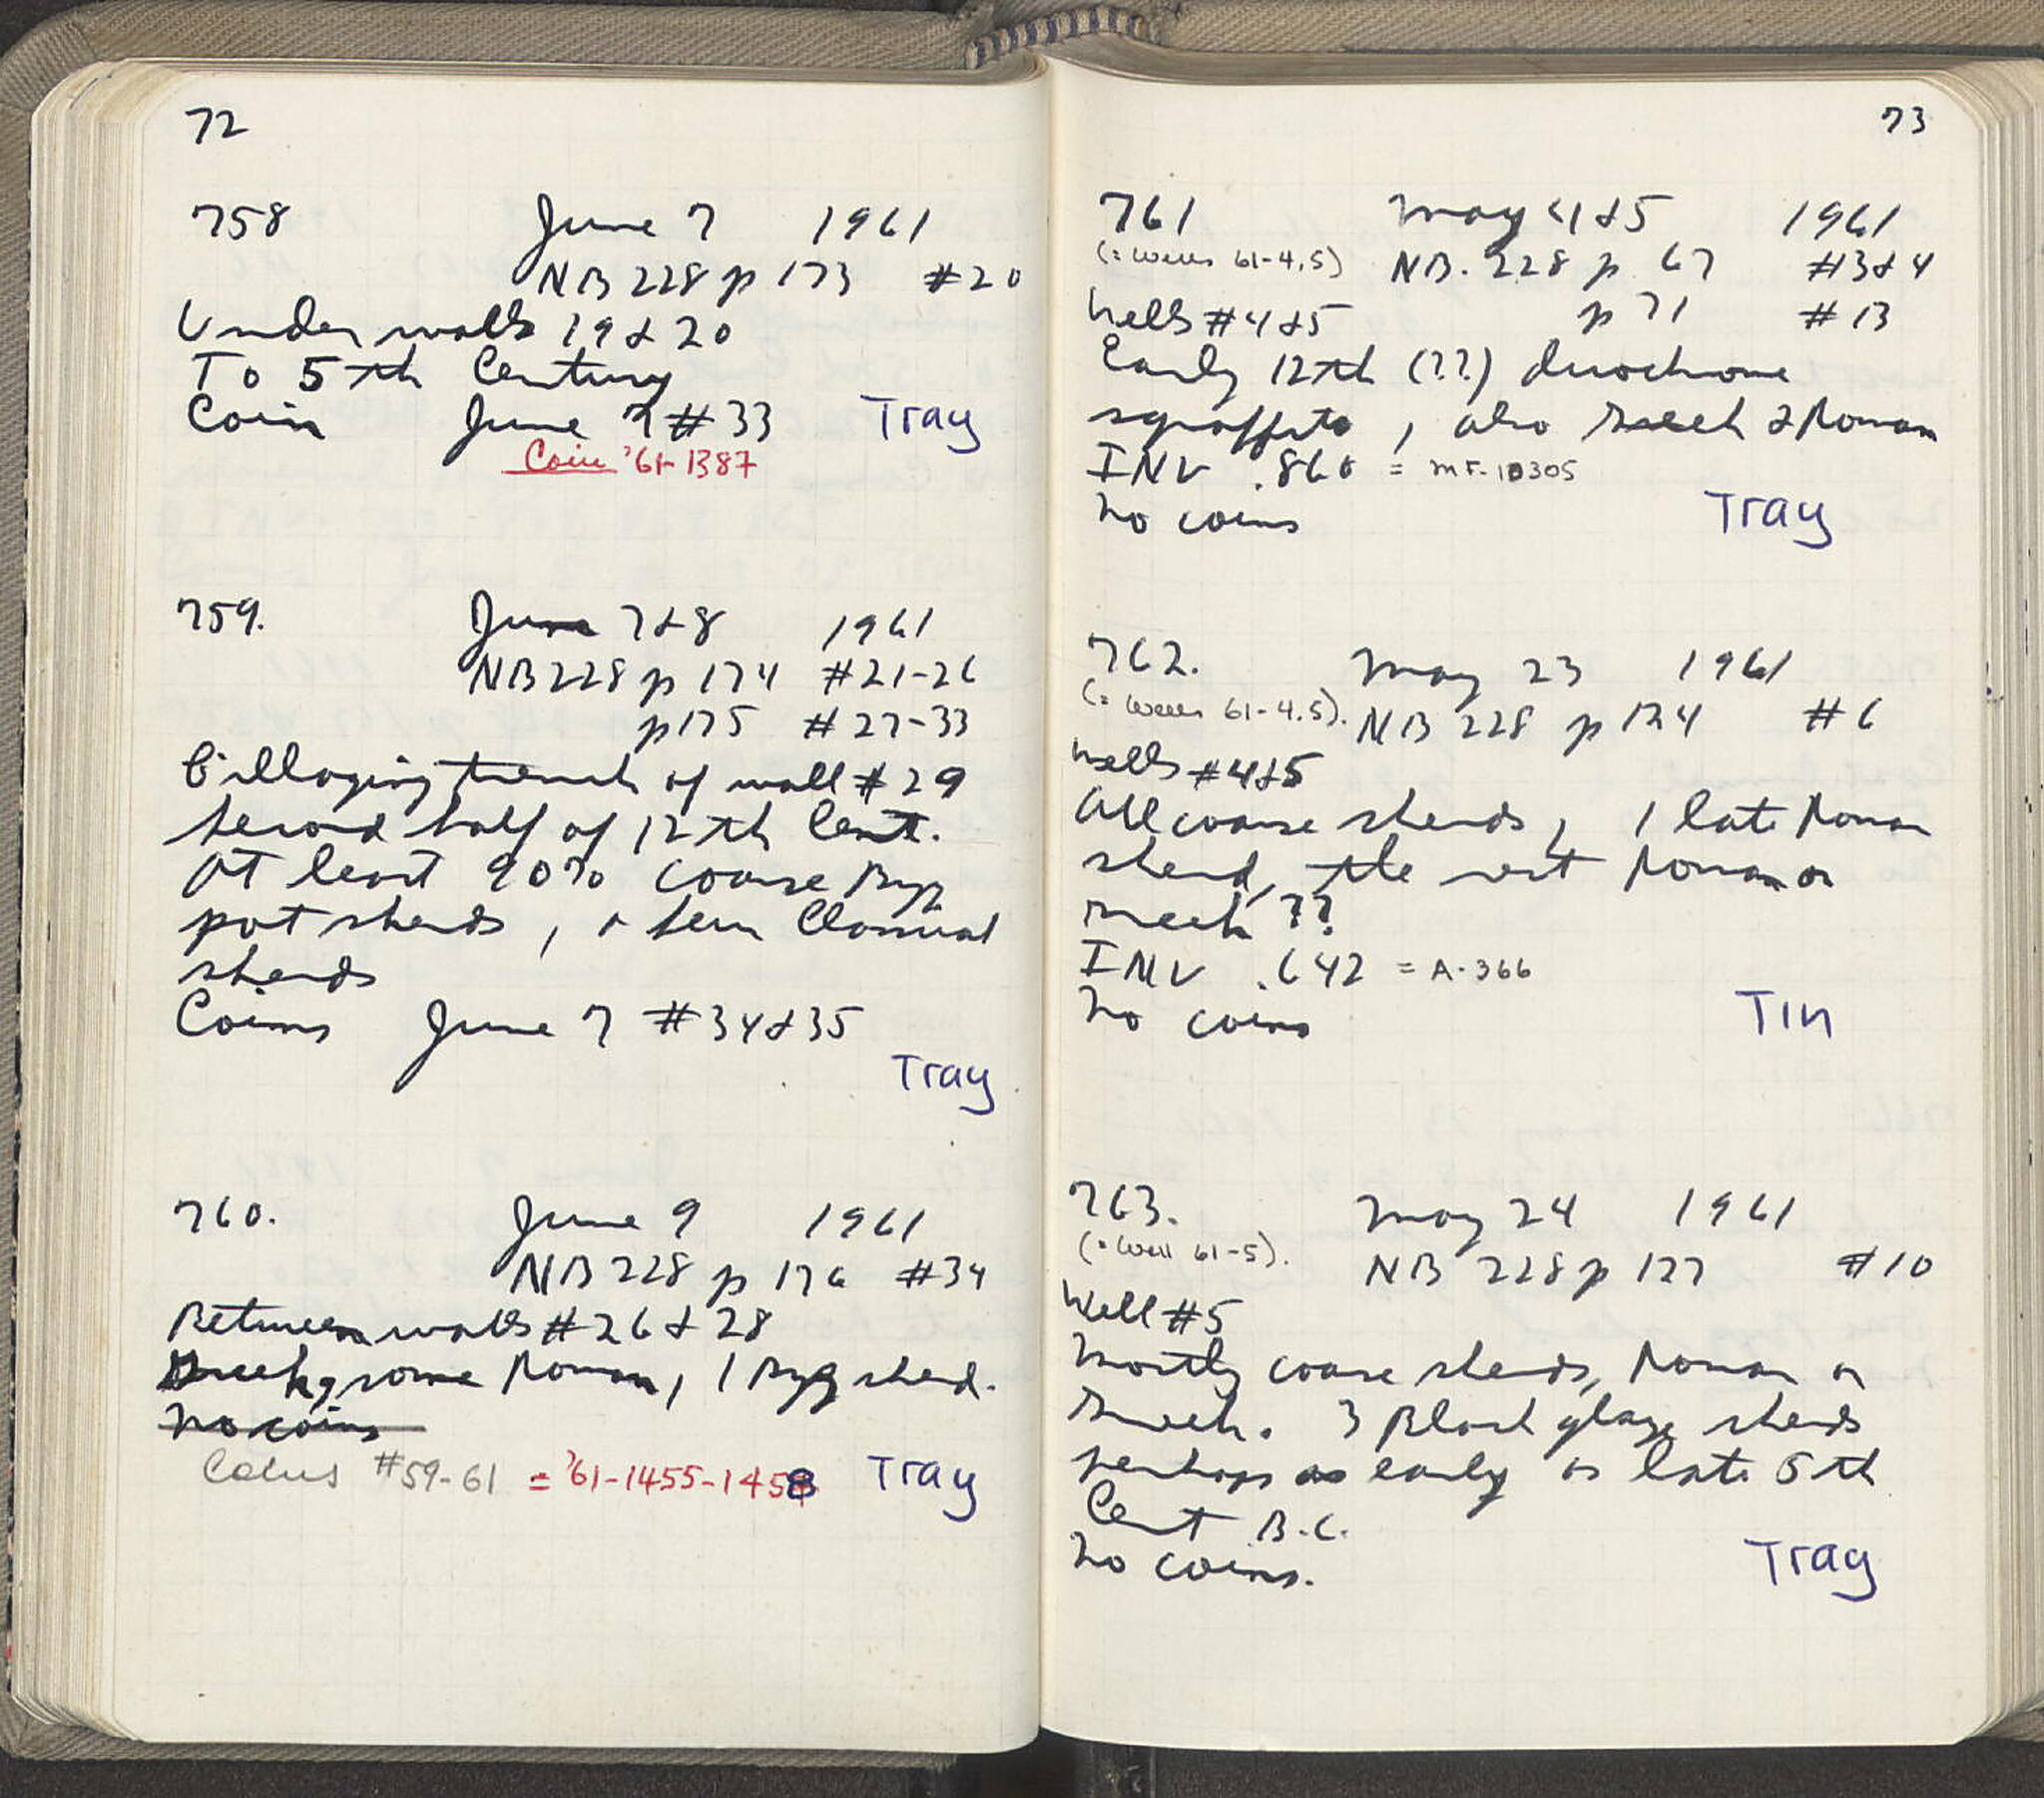 72
758 June 7 1961
NB 228 p 173 #20
Under walls 19 & 20
To 5th Century
Coin June 7 #33 Tray
Coin '61-1387
759. June 7 & 8 1961
NB 228 p 174 #21-26
p 175 #27-33
Pillaging trench of wall #29
Second half of 12th Cent.
At least 90% coarse Byz
pot sherds, a few Classical
sherds
Coins June 7 #34 & 35
Tray
760. June 9 1961
NB 228 p 176 #34
Between walls #26 & 28
Greek, some Roman, 1 Byz sherd.
No coins
Coins #59-61 = '61-1455-1458 Tray
73
761 May 4 & 5 1961
(= Wells 61-4,5) NB. 228 p 67 #3 & 4
Wells #4 & 5 p 71 #13
Early 12th (??) duochrome
sgraffito, also Greek & Roman
INV .860 = MF-10305
No coins Tray
762. May 23 1961
(= Wells 61-4,5). NB 228 p 124 #6
Wells #4 & 5
All coarse sherds, 1 late Roman
sherd, the rest Roman or
Greek ??
INV .642 = A-366
No coins Tin
763. May 24 1961
(= Well 61-5). NB 228 p 127 #10
Well #5
Mostly coarse sherds, Roman or
Greek. 3 Black glaze sherds
perhaps as early as late 5th
Cent B.C.
No coins. Tray